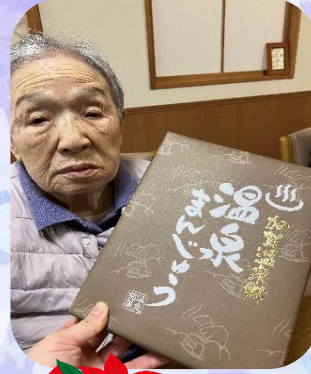 加賀温泉郷
温泉
まんじゅう